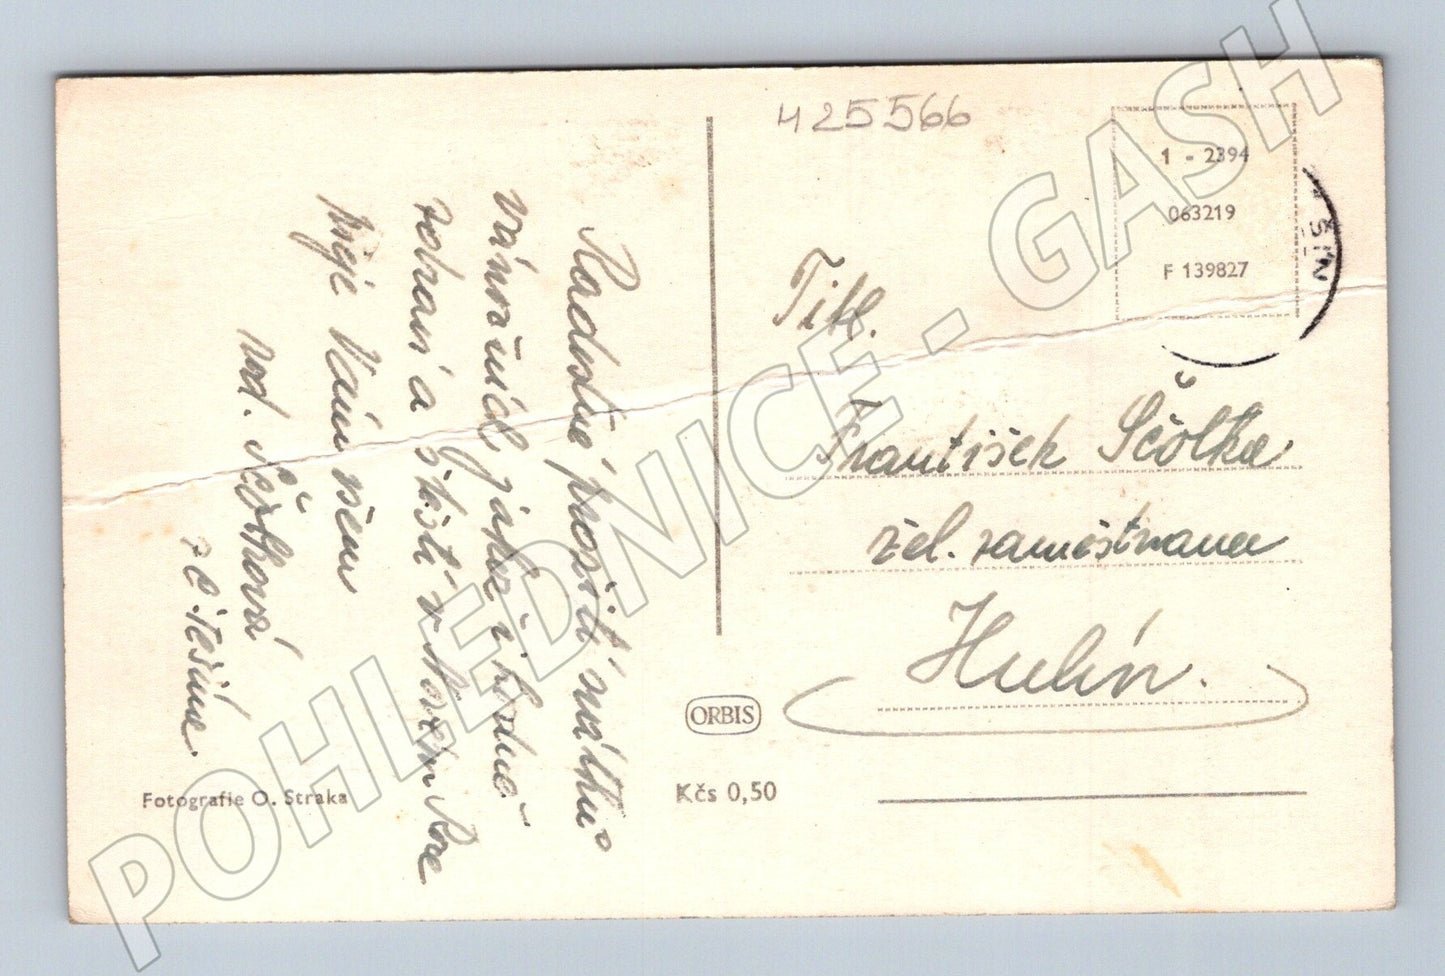 425566
1 - 2394
063219
F 139827
Radostné prožití svátků
vánočních jakož i hodně
zdraví a štěstí v Novém Roce
přeje Vám všem
rod. Ščotková
z Letešína
Titl.
František Ščotka
žel. zaměstnanec
Hulín.
ORBIS
Kčs 0,50
Fotografie O. Straka
POHLEDNICE - GASH